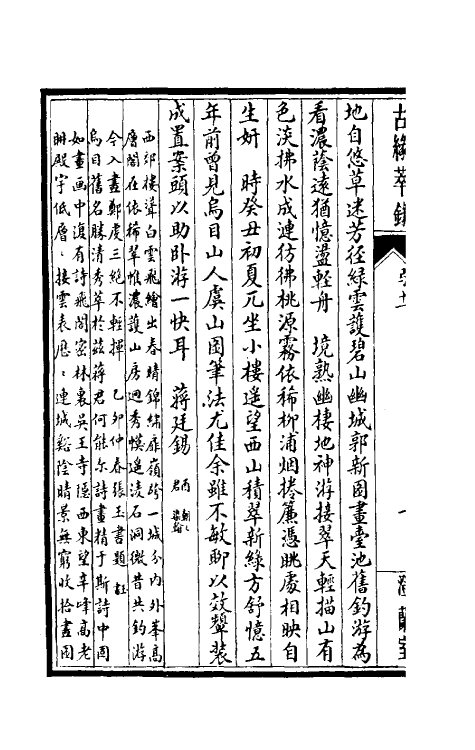 古緣萃錄
卷十一
一
澄蘭室
地自悠草迷芳徑綠雲護碧山幽城郭新圖畫臺池舊釣游為
看濃蔭遠猶憶盪輕舟　境熟幽棲地神游接翠天輕描山有
色淡拂水成連彷彿桃源霧依稀柳浦烟捲簾憑眺處相映自
生妍　時癸丑初夏兀坐小樓遙望西山積翠新綠方舒憶五
年前曾見烏目山人虞山圖筆法尤佳余雖不敏聊以效顰裝
成置案頭以助卧游一快耳　蔣廷錫
西郊樓聳白雲飛繪出春晴錦繡扉嶺跨一城分內外峯高
層閣在依稀翠惟濃護山房迴秀幙遥淩石洞微昔共釣游
今入畫鄭虔三絕不輕揮　己卯仲春張玉書題
烏目舊名勝清秀萃於茲蔣君何能尔詩畫精于斯詩中圖
如畫画中復有詩飛閣密林裏吳王寺隱西東望辛峰高老
畊殿宇低層接雲表應連城谿陰晴景無窮收拾畫圖